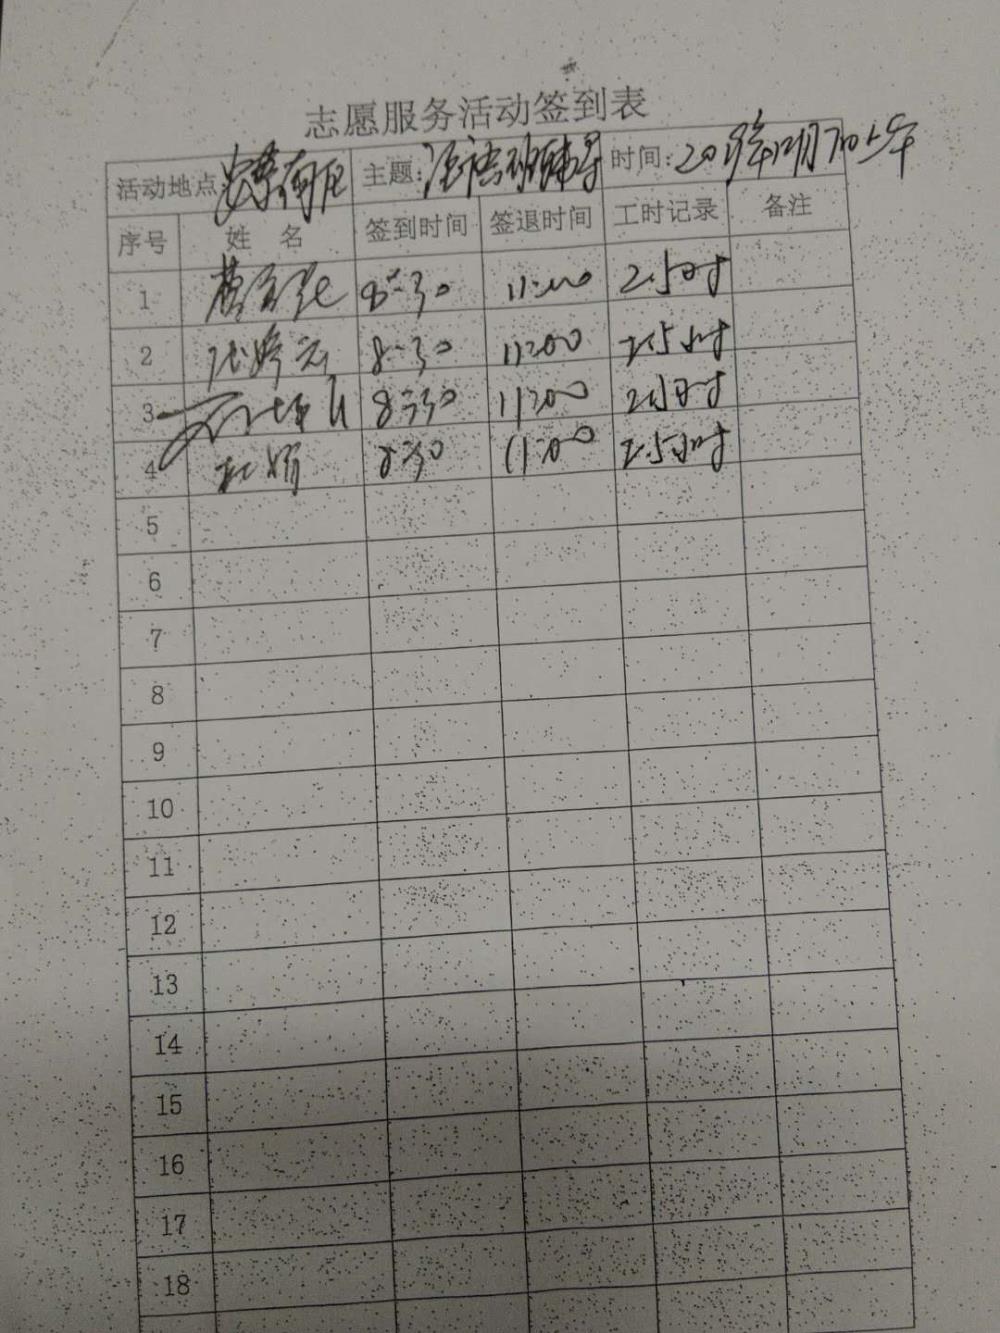 志愿服务活动签到表
活动地点 主题: 辅导 时间: 12月7日上午
序号 姓 名 签到时间 签退时间 工时记录 备注
1 8:30 11:00 2.5小时
2 8:30 11:00 2.5小时
3 8:30 11:00 2.5小时
4 8:30 11:00 2.5小时
5
6
7
8
9
10
11
12
13
14
15
16
17
18